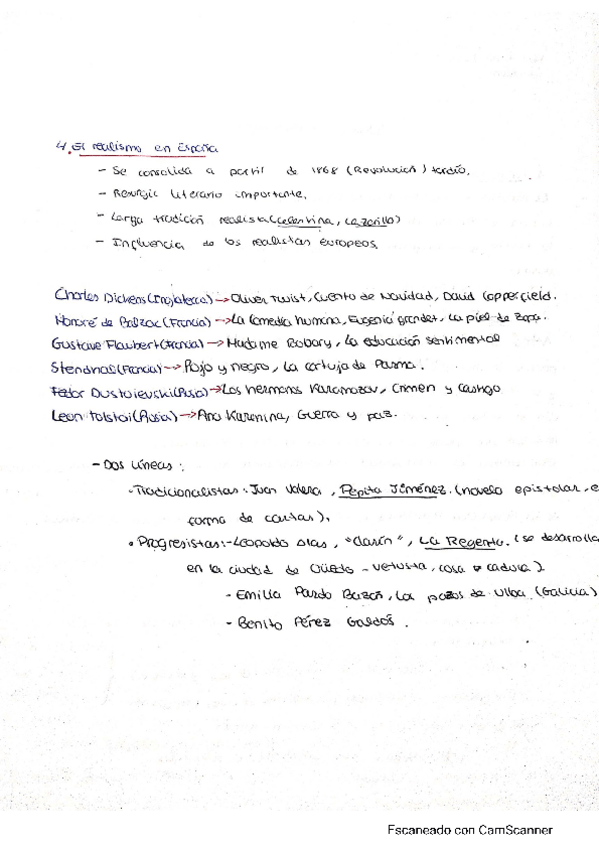 4. El realismo en España
- Se consolida a partir de 1868 (Revolución) tardío.
- Resurgir literario importante.
- Larga tradición realista (Celestina, Lazarillo)
- Influencia de los realistas europeos.
Charles Dickens (Inglaterra) → Oliver Twist, Cuento de Navidad, David Copperfield.
Honoré de Balzac (Francia) → La comedia humana, Eugenia Grandet, La piel de zapa.
Gustave Flaubert (Francia) → Madame Bobary, La educación sentimental
Stendhal (Francia) → Rojo y negro, La cartuja de Parma.
Fedor Dustoievski (Rusia) → Los hermanos Karamazov, Crimen y castigo
Leon Tolstoi (Rusia) → Ana Karenina, Guerra y paz.
- Dos líneas:
• Tradicionalistas: Juan Valera, Pepita Jiménez. (novela epistolar, e
forma de cartas).
• Progresistas: - Leopoldo Alas, "Clarín", La Regenta. (se desarrolla
en la ciudad de Oviedo - Vetusta, cosa caduca)
- Emilia Pardo Bazán, Los pazos de Ulloa. (Galicia)
- Benito Pérez Galdós.
Escaneado con CamScanner